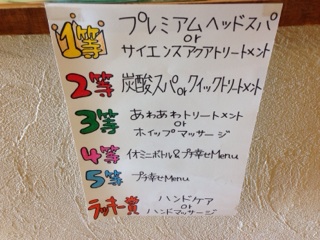 1等 プレミアムヘッドスパ
or
サイエンスアクアトリートメント
2等 炭酸スパorクイックトリートメント
3等 あわあわトリートメント
or
ホイップマッサージ
4等 イオミニボトル&プチ幸せMenu
5等 プチ幸せMenu
ラッキー賞 ハンドケア
or
ハンドマッサージ